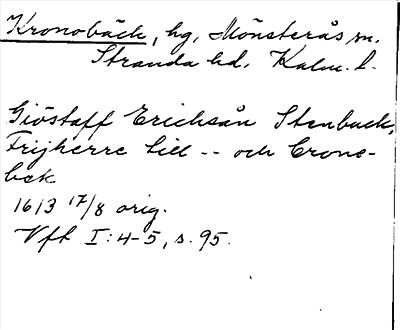 Kronobäck, hg, Mönsterås sn.
Stranda hd, Kalm. l.
Giöstaff Erichsån Stenbuck,
Frijherre till -- och Crone-
beck
1613 17/8 orig.
Vfh I:4-5, s. 95.